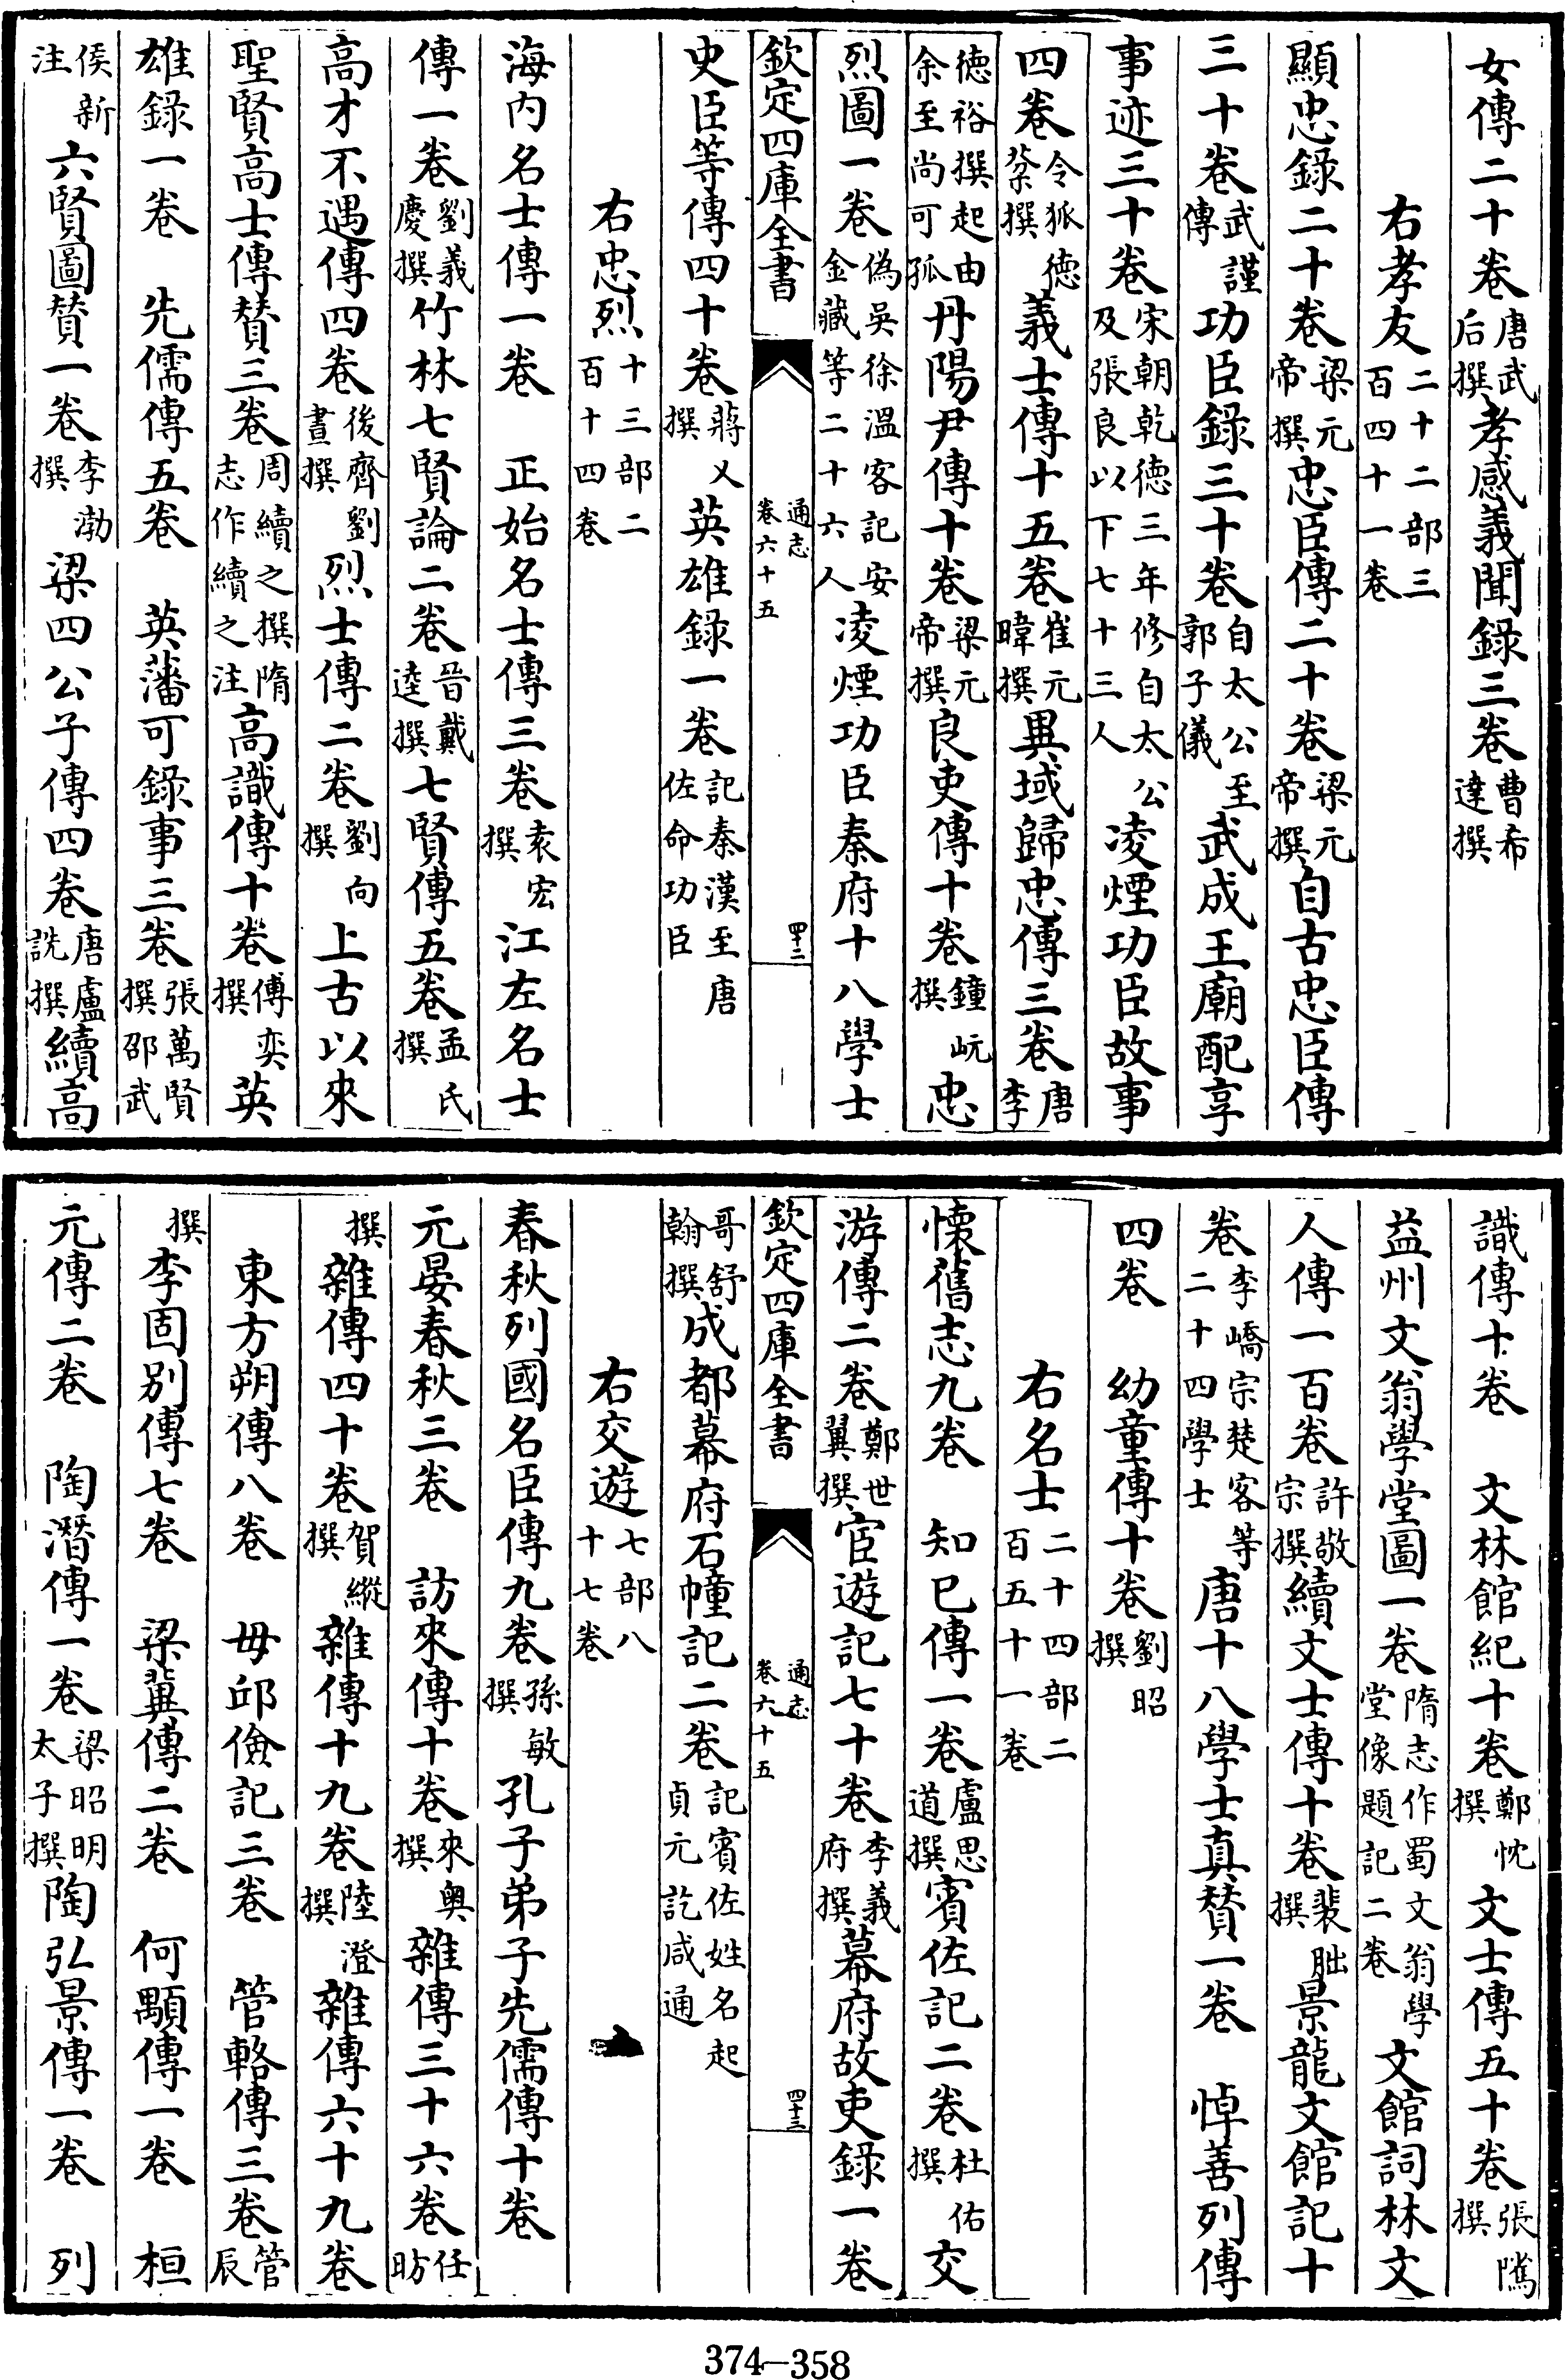 女傳二十卷唐武后撰孝感義聞錄三卷曹希逹撰
右孝友二十二部三百四十一卷
顯忠錄二十卷梁元帝撰忠臣傳二十卷梁元帝撰自古忠臣傳
三十卷武謹傳功臣錄三十卷自太公至郭子儀武成王廟配享
事迹三十卷宋朝乾德三年修自太公及張良以下七十三人凌煙功臣故事
四卷令狐德棻撰義士傳十五卷崔元暐撰異域歸忠傳三卷唐李
德裕撰起由余至尚可孤丹陽尹傳十卷梁元帝撰良吏傳十卷鐘岏撰忠
烈圖一卷偽吳徐溫客記安金藏等二十六人凌煙功臣秦府十八學士
欽定四庫全書
通志卷六十五
四十二
史臣等傳四十卷蔣乂撰英雄錄一卷記秦漢至唐佐命功臣
右忠烈十三部二百十四卷
海内名士傳一卷　正始名士傳三卷袁宏撰江左名士
傳一卷劉義慶撰竹林七賢論二卷晉戴逵撰七賢傳五卷孟氏撰
高才不遇傳四卷後齊劉晝撰烈士傳二卷劉向撰上古以來
聖賢高士傳贊三卷周續之撰隋志作續之注高識傳十卷傅奕撰英
雄錄一卷　先儒傳五卷　英藩可錄事三卷張萬賢撰邵武
侯新注六賢圖贊一卷李渤撰梁四公子傳四卷唐盧詵撰續高
識傳十卷　文林館紀十卷鄭忱撰文士傳五十卷張隲撰
益州文翁學堂圖一卷隋志作蜀文翁學堂像題記二卷文館詞林文
人傳一百卷許敬宗撰續文士傳十卷裴朏撰景龍文館記十
卷李嶠宗楚客等二十四學士唐十八學士真贊一卷　悼善列傳
四卷　幼童傳十卷劉昭撰
右名士二十四部二百五十一卷
懷舊志九卷　知已傳一卷盧思道撰賓佐記二卷杜佑撰交
游傳二卷鄭世翼撰宦遊記七十卷李義府撰幕府故吏錄一卷
欽定四庫全書
通志卷六十五
四十三
哥舒翰撰成都幕府石幢記二卷記賓佐姓名起貞元訖咸通
右交遊七部八十七卷
春秋列國名臣傳九卷孫敏撰孔子弟子先儒傳十卷
元晏春秋三卷　訪來傳十卷來奥撰雜傳三十六卷任昉
撰雜傳四十卷賀縱撰雜傳十九卷陸澄撰雜傳六十九卷
東方朔傳八卷　毋邱儉記三卷　管輅傳三卷管辰
撰李固别傳七卷　梁冀傳二卷　何顒傳一卷　桓
元傳二卷　陶潛傳一卷梁昭明太子撰陶弘景傳一卷　列
374—358